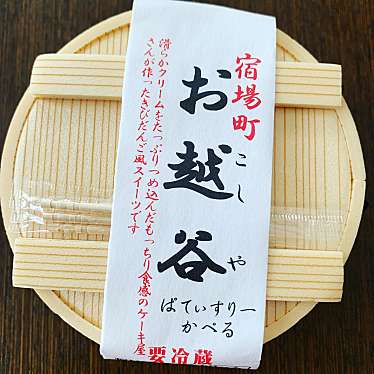 宿場町
お越谷
こしや
滑らかクリームをたっぷりつめ込んだもっちり食感のケーキ屋
さんが作ったきびだんご風スイーツです
ぱてぃすりー
かべる
要冷蔵